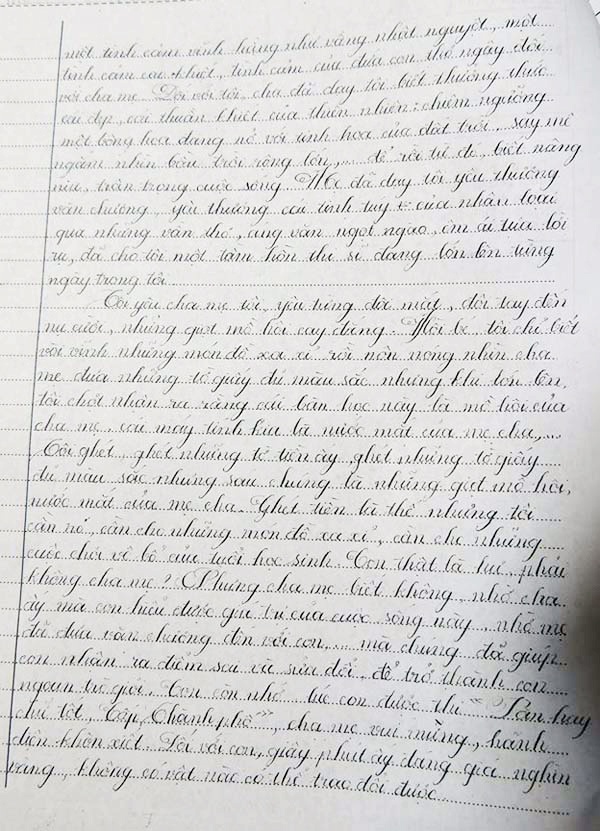 một tình cảm vĩnh hằng như vầng nhật nguyệt, một
tình cảm cao khiết, tình cảm của đứa con thơ ngây đối
với cha mẹ. Đối với tôi, cha đã dạy tôi biết thưởng thức
cái đẹp, cái thuần khiết của thiên nhiên: chiêm ngưỡng
một bông hoa đang nở với tinh hoa của đất trời, say mê
ngắm nhìn bầu trời rộng lớn,... để rồi từ đó, biết nâng
niu, trân trọng cuộc sống. Mẹ đã dạy tôi yêu thương
văn chương, yêu thương cái tinh túy của nhân loại
qua những vần thơ, áng văn ngọt ngào, êm ái tựa lời
ru, đã cho tôi một tâm hồn thi sĩ đang lớn lên từng
ngày trong tôi.
Tôi yêu cha mẹ tôi, yêu từng đôi mắt, đôi tay đến
nụ cười, những giọt mồ hôi cay đắng. Hồi bé, tôi chỉ biết
vòi vĩnh những món đồ xa xỉ rồi nôn nóng nhìn cha
mẹ đưa những tờ giấy đủ màu sắc nhưng khi lớn lên,
tôi chợt nhận ra rằng cái bàn học này là mồ hôi của
cha mẹ, cái máy tính kia là nước mắt của mẹ cha,...
Tôi ghét, ghét những tờ tiền ấy, ghét những tờ giấy
đủ màu sắc nhưng sau chúng là những giọt mồ hôi,
nước mắt của mẹ cha. Ghét tiền là thế nhưng tôi
cần nó, cần cho những món đồ xa xỉ, cần cho những
cuộc chơi vô bổ của tuổi học sinh. Con thật là hư, phải
không cha mẹ? Nhưng cha mẹ biết không, nhờ cha
ấy mà con hiểu được giá trị của cuộc sống này, nhờ mẹ
đã đưa văn chương đến với con,... mà chúng đã giúp
con nhận ra điểm sai và sửa đổi, để trở thành con
ngoan trò giỏi. Con còn nhớ lúc con được thi
chữ tốt, Cấp Thành phố", cha mẹ vui mừng, hãnh
diện khôn xiết. Đối với con, giây phút ấy đáng giá nghìn
vàng, không có vật nào có thể trao đổi được.